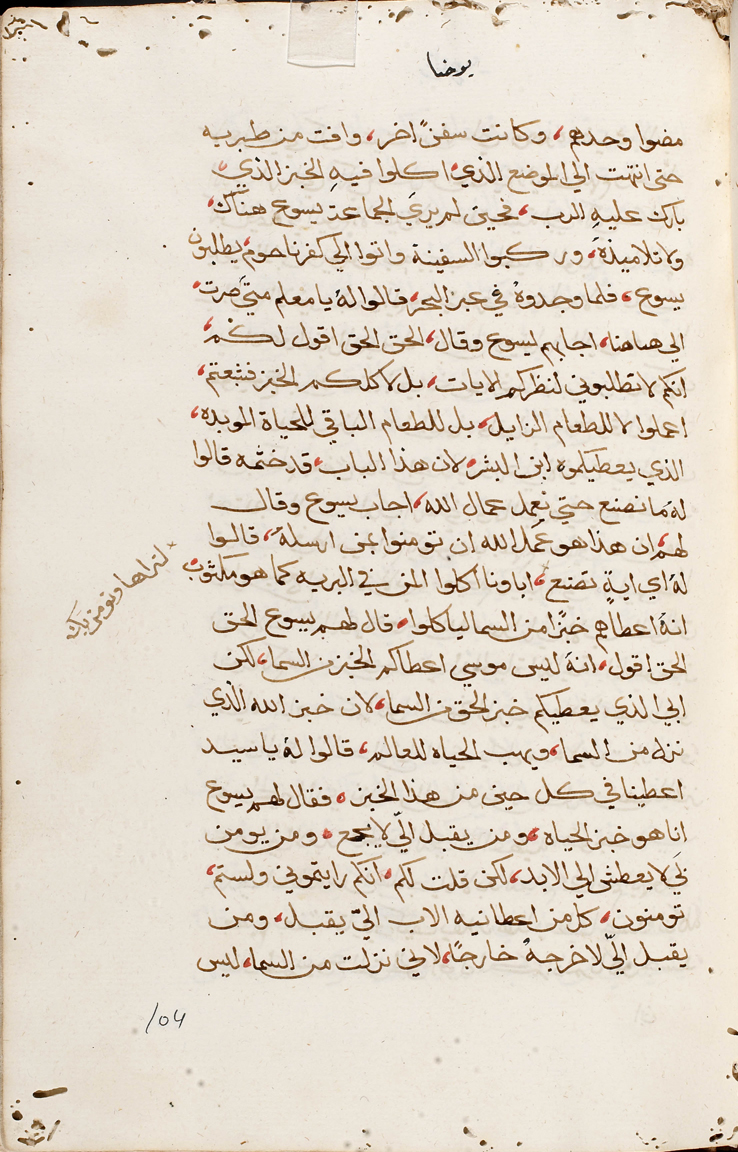 يوحنا
مضوا وحدهم، وكانت سفنً اخر، وافت من طبريه
حتى انتهت الي الموضع الذي اكلوا فيهِ الخبز الذي
بارك عليهِ الرب، فحين لم يريَ الجماعة يسوع هناك،
ولا تلاميذهَ، وركبوا السفينة واتوا الي كفرناحوم، يطلبون
يسوع، فلما وجدوهُ في عبر البحر، قالوا لهُ يا معلم متيَ صرت
الي هاهنا، اجابهم ليسوع وقال، الحق الحق اقول لكم،
انكم لا تطلبوني لنظركم الايات، بل لاكلكم الخبز فشبعتم،
اعملوا لا للطعام الزايل، بل للطعام الباقي للحياة الموبده،
الذي يعطيكموه ابن البشر، لان هذا الباب، قد ختمه قالوا
لهُ ما نصنع حتي نعمل عمال الله، اجاب يسوع وقال
لهم، ان هذا هو عَمَل الله ان تومنوا بمن ارسلهُ، قالوا
لهُ اي ايةٍ تصنع، اباونا اكلوا المن في البريه كما هو مكتوب
لنراها ونومن بك
انهُ اعطاهم خبزًا من السما لياكلوا، قال لهم يسوع الحق
الحق اقول، انهَ ليس موسي اعطاكم الخبز من السما، لكن
ابي الذي يعطيكم خبز الحق من السما، لان خبز الله الذي
نزل من السما، ويهب الحياه للعالم، قالوا لهُ يا سيد
اعطينا في كل حين من هذا الخبز، فقال لهم يسوع
انا هو خبز الحياه، ومن يقبل اليّ لا يجوع، ومن يومن
بي لا يعطش الي الابد، لكن قلت لكم، انكم رايتموني ولستم،
تومنون، كل من اعطانيه الاب اليّ يقبل، ومن
يقبل اليّ لا اخرجهُ خارجًا، لاني نزلت من السما، ليس
104